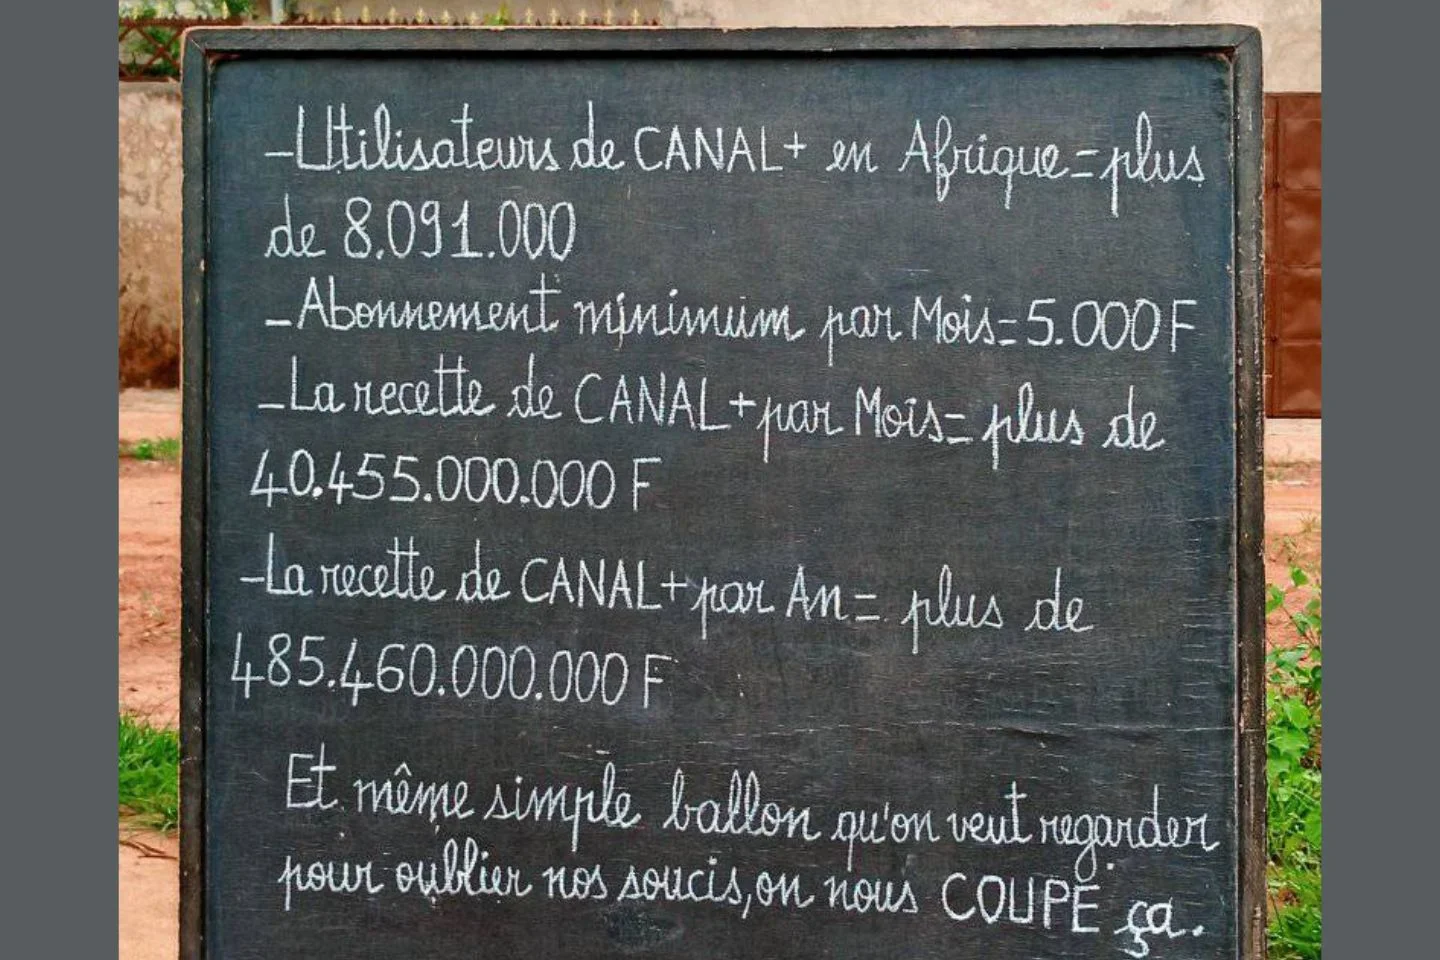 -Utilisateurs de CANAL+ en Afrique=plus
de 8.091.000
-Abonnement minimum par Mois=5.000F
-La recette de CANAL+par Mois= plus de
40.455.000.000 F
-La recette de CANAL+par An= plus de
485.460.000.000 F
Et même simple ballon qu'on veut regarder
pour oublier nos soucis, on nous COUPE ça.